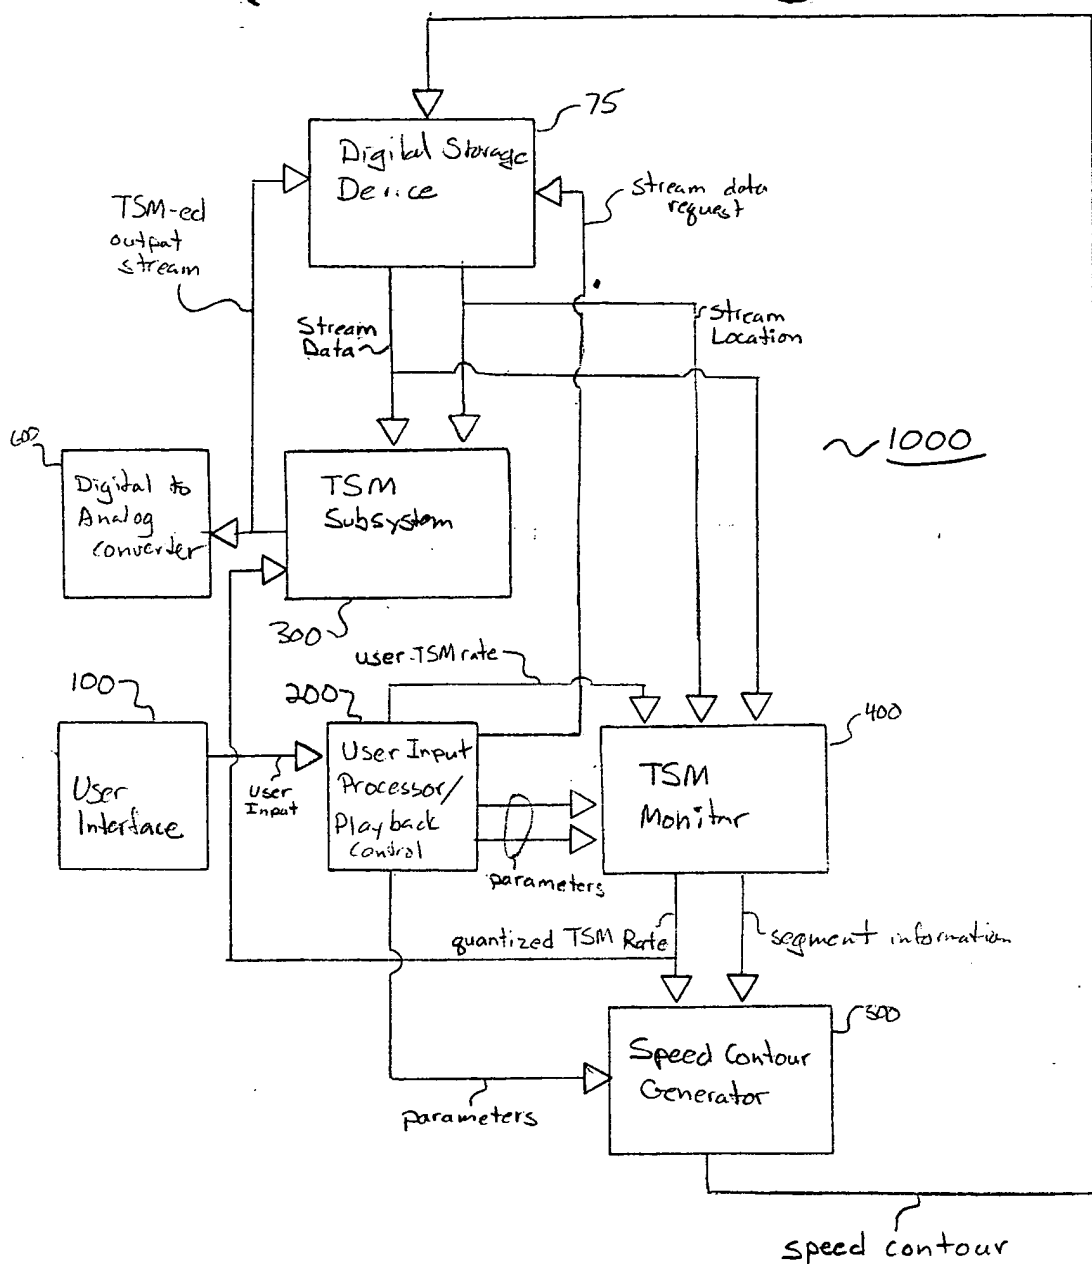 75
Digital Storage
Device
stream data
request
TSM-ed
output
stream
Stream
Data
Stream
Location
1000
600
Digital to
Analog
converter
TSM
Subsystem
300
user TSM rate
100
200
400
User
Interface
User
Input
User Input
Processor/
Playback
Control
TSM
Monitor
parameters
quantized TSM Rate
segment information
500
Speed Contour
Generator
parameters
speed contour